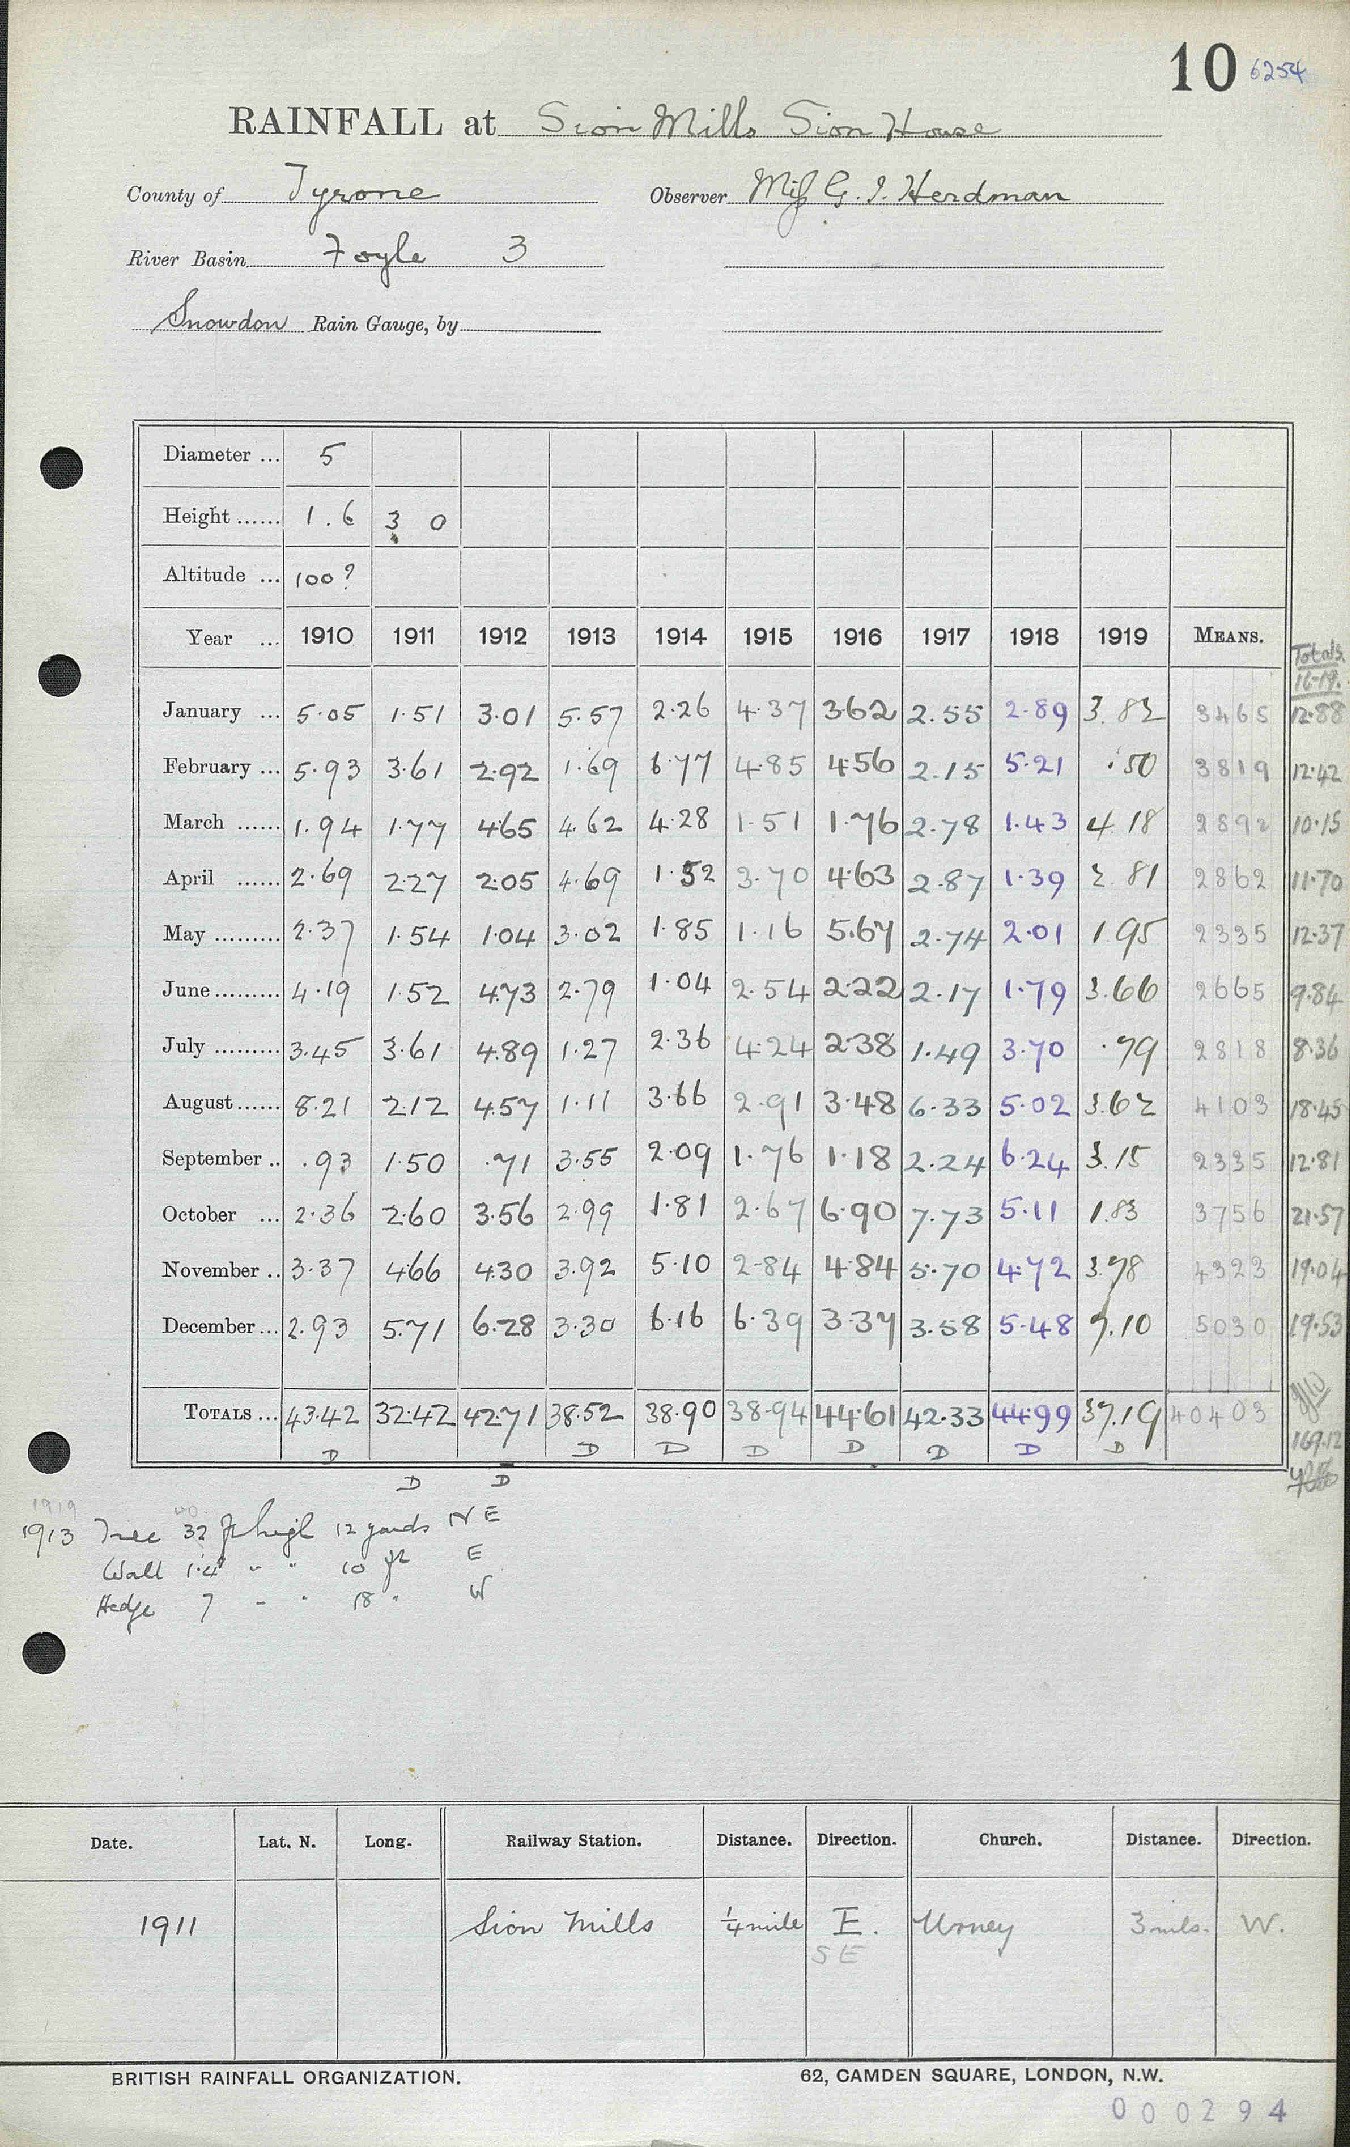 10 6254
RAINFALL at Sion Mills Sion House
County of Tyrone Observer Miss G. I. Herdman
River Basin Foyle 3
Snowdon Rain Gauge, by
Diameter ... 5
Height ...... 1.6 3 0
Altitude ... 100?
Year ... 1910 1911 1912 1913 1914 1915 1916 1917 1918 1919 MEANS. Totals 16-19.
January ... 5.05 1.51 3.01 5.57 2.26 4.37 3.62 2.55 2.89 3.82 3465 12.88
February ... 5.93 3.61 2.92 1.69 6.77 4.85 4.56 2.15 5.21 .50 3819 12.42
March ...... 1.94 1.77 4.65 4.62 4.28 1.51 1.76 2.78 1.43 4.18 2892 10.15
April ...... 2.69 2.27 2.05 4.69 1.52 3.70 4.63 2.87 1.39 2.81 2862 11.70
May ......... 2.37 1.54 1.04 3.02 1.85 1.16 5.67 2.74 2.01 1.95 2335 12.37
June ......... 4.19 1.52 4.73 2.79 1.04 2.54 2.22 2.17 1.79 3.66 2665 9.84
July ......... 3.45 3.61 4.89 1.27 2.36 4.24 2.38 1.49 3.70 .79 2818 8.36
August ...... 8.21 2.12 4.57 1.11 3.66 2.91 3.48 6.33 5.02 3.62 4103 18.45
September .. .93 1.50 .71 3.55 2.09 1.76 1.18 2.24 6.24 3.15 2335 12.81
October ... 2.36 2.60 3.56 2.99 1.81 2.67 6.90 7.73 5.11 1.83 3756 21.57
November .. 3.37 4.66 4.30 3.92 5.10 2.84 4.84 5.70 4.72 3.78 4323 19.04
December ... 2.93 5.71 6.28 3.30 6.16 6.39 3.37 3.58 5.48 7.10 5030 19.53
TOTALS ... 43.42 32.42 42.71 38.52 38.90 38.94 44.61 42.33 44.99 37.19 40403 169.12
D D D D D D D D
D D
1919 40
1913 Tree 32 ft high 12 yards N E
Wall 1.4 " " 10 ft E
Hedge 7 " " 18 " W
Date. Lat. N. Long. Railway Station. Distance. Direction. Church. Distance. Direction.
1911 Sion Mills ¼ mile E. Urney 3 mls. W.
SE
BRITISH RAINFALL ORGANIZATION. 62, CAMDEN SQUARE, LONDON, N.W.
000294